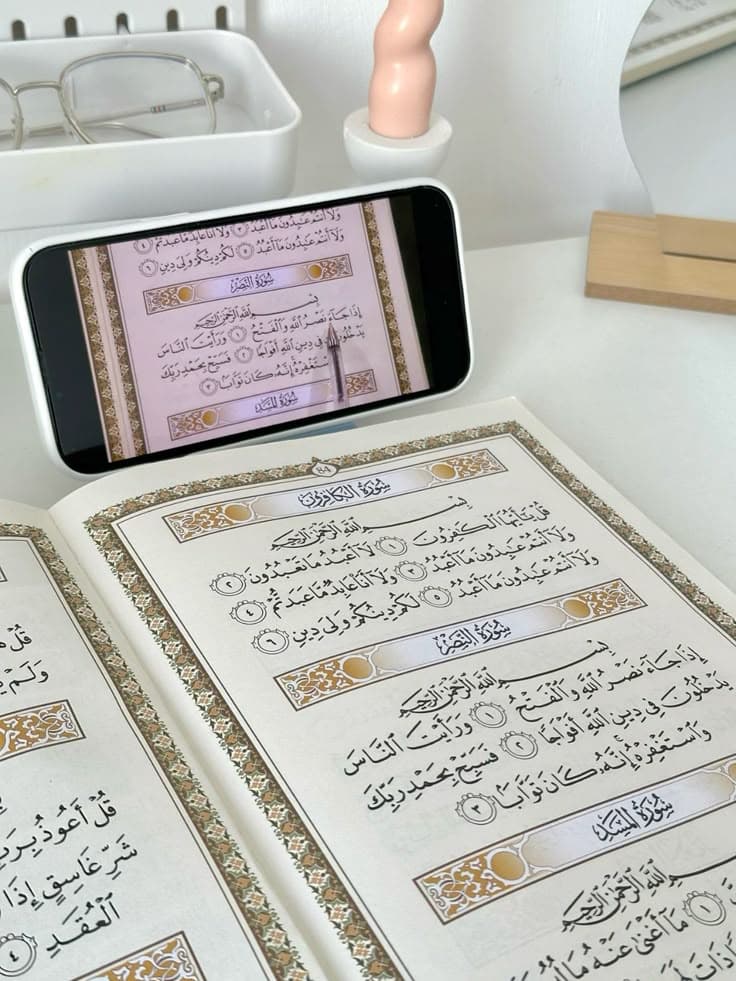 وَلَآ أَنتُمْ عَٰبِدُونَ مَآ أَعْبُدُ ٣ وَلَآ أَنَا۠ عَابِدٌ مَّا عَبَدتُّمْ ٤
وَلَآ أَنتُمْ عَٰبِدُونَ مَآ أَعْبُدُ ٥ لَكُمْ دِينُكُمْ وَلِيَ دِينِ ٦
سُورَةُ النَّصْرِ
بِسْمِ ٱللَّهِ ٱلرَّحْمَٰنِ ٱلرَّحِيمِ
إِذَا جَآءَ نَصْرُ ٱللَّهِ وَٱلْفَتْحُ ١ وَرَأَيْتَ ٱلنَّاسَ
يَدْخُلُونَ فِى دِينِ ٱللَّهِ أَفْوَاجًا ٢ فَسَبِّحْ بِحَمْدِ رَبِّكَ
إِنَّهُۥ كَانَ تَوَّابًۢا ٣
سُورَةُ المَسَدِ
سُورَةُ الكَافِرُونَ
بِسْمِ ٱللَّهِ ٱلرَّحْمَٰنِ ٱلرَّحِيمِ
قُلْ يَٰٓأَيُّهَا ٱلْكَٰفِرُونَ ١ لَآ أَعْبُدُ مَا تَعْبُدُونَ ٢
وَلَآ أَنتُمْ عَٰبِدُونَ مَآ أَعْبُدُ ٣ وَلَآ أَنَا۠ عَابِدٌ مَّا عَبَدتُّمْ ٤
وَلَآ أَنتُمْ عَٰبِدُونَ مَآ أَعْبُدُ ٥ لَكُمْ دِينُكُمْ وَلِيَ دِينِ ٦
سُورَةُ النَّصْرِ
بِسْمِ ٱللَّهِ ٱلرَّحْمَٰنِ ٱلرَّحِيمِ
إِذَا جَآءَ نَصْرُ ٱللَّهِ وَٱلْفَتْحُ ١ وَرَأَيْتَ ٱلنَّاسَ
يَدْخُلُونَ فِى دِينِ ٱللَّهِ أَفْوَاجًا ٢ فَسَبِّحْ بِحَمْدِ رَبِّكَ
وَٱسْتَغْفِرْهُ إِنَّهُۥ كَانَ تَوَّابًۢا ٣
سُورَةُ المَسَدِ
بِسْمِ ٱللَّهِ ٱلرَّحْمَٰنِ ٱلرَّحِيمِ
١ مَآ أَغْنَىٰ عَنْهُ
قُلْ
وَلَمْ
قُلْ أَعُوذُ
شَرِّ غَاسِقٍ إِذَا
ٱلْعُقَدِ ٤